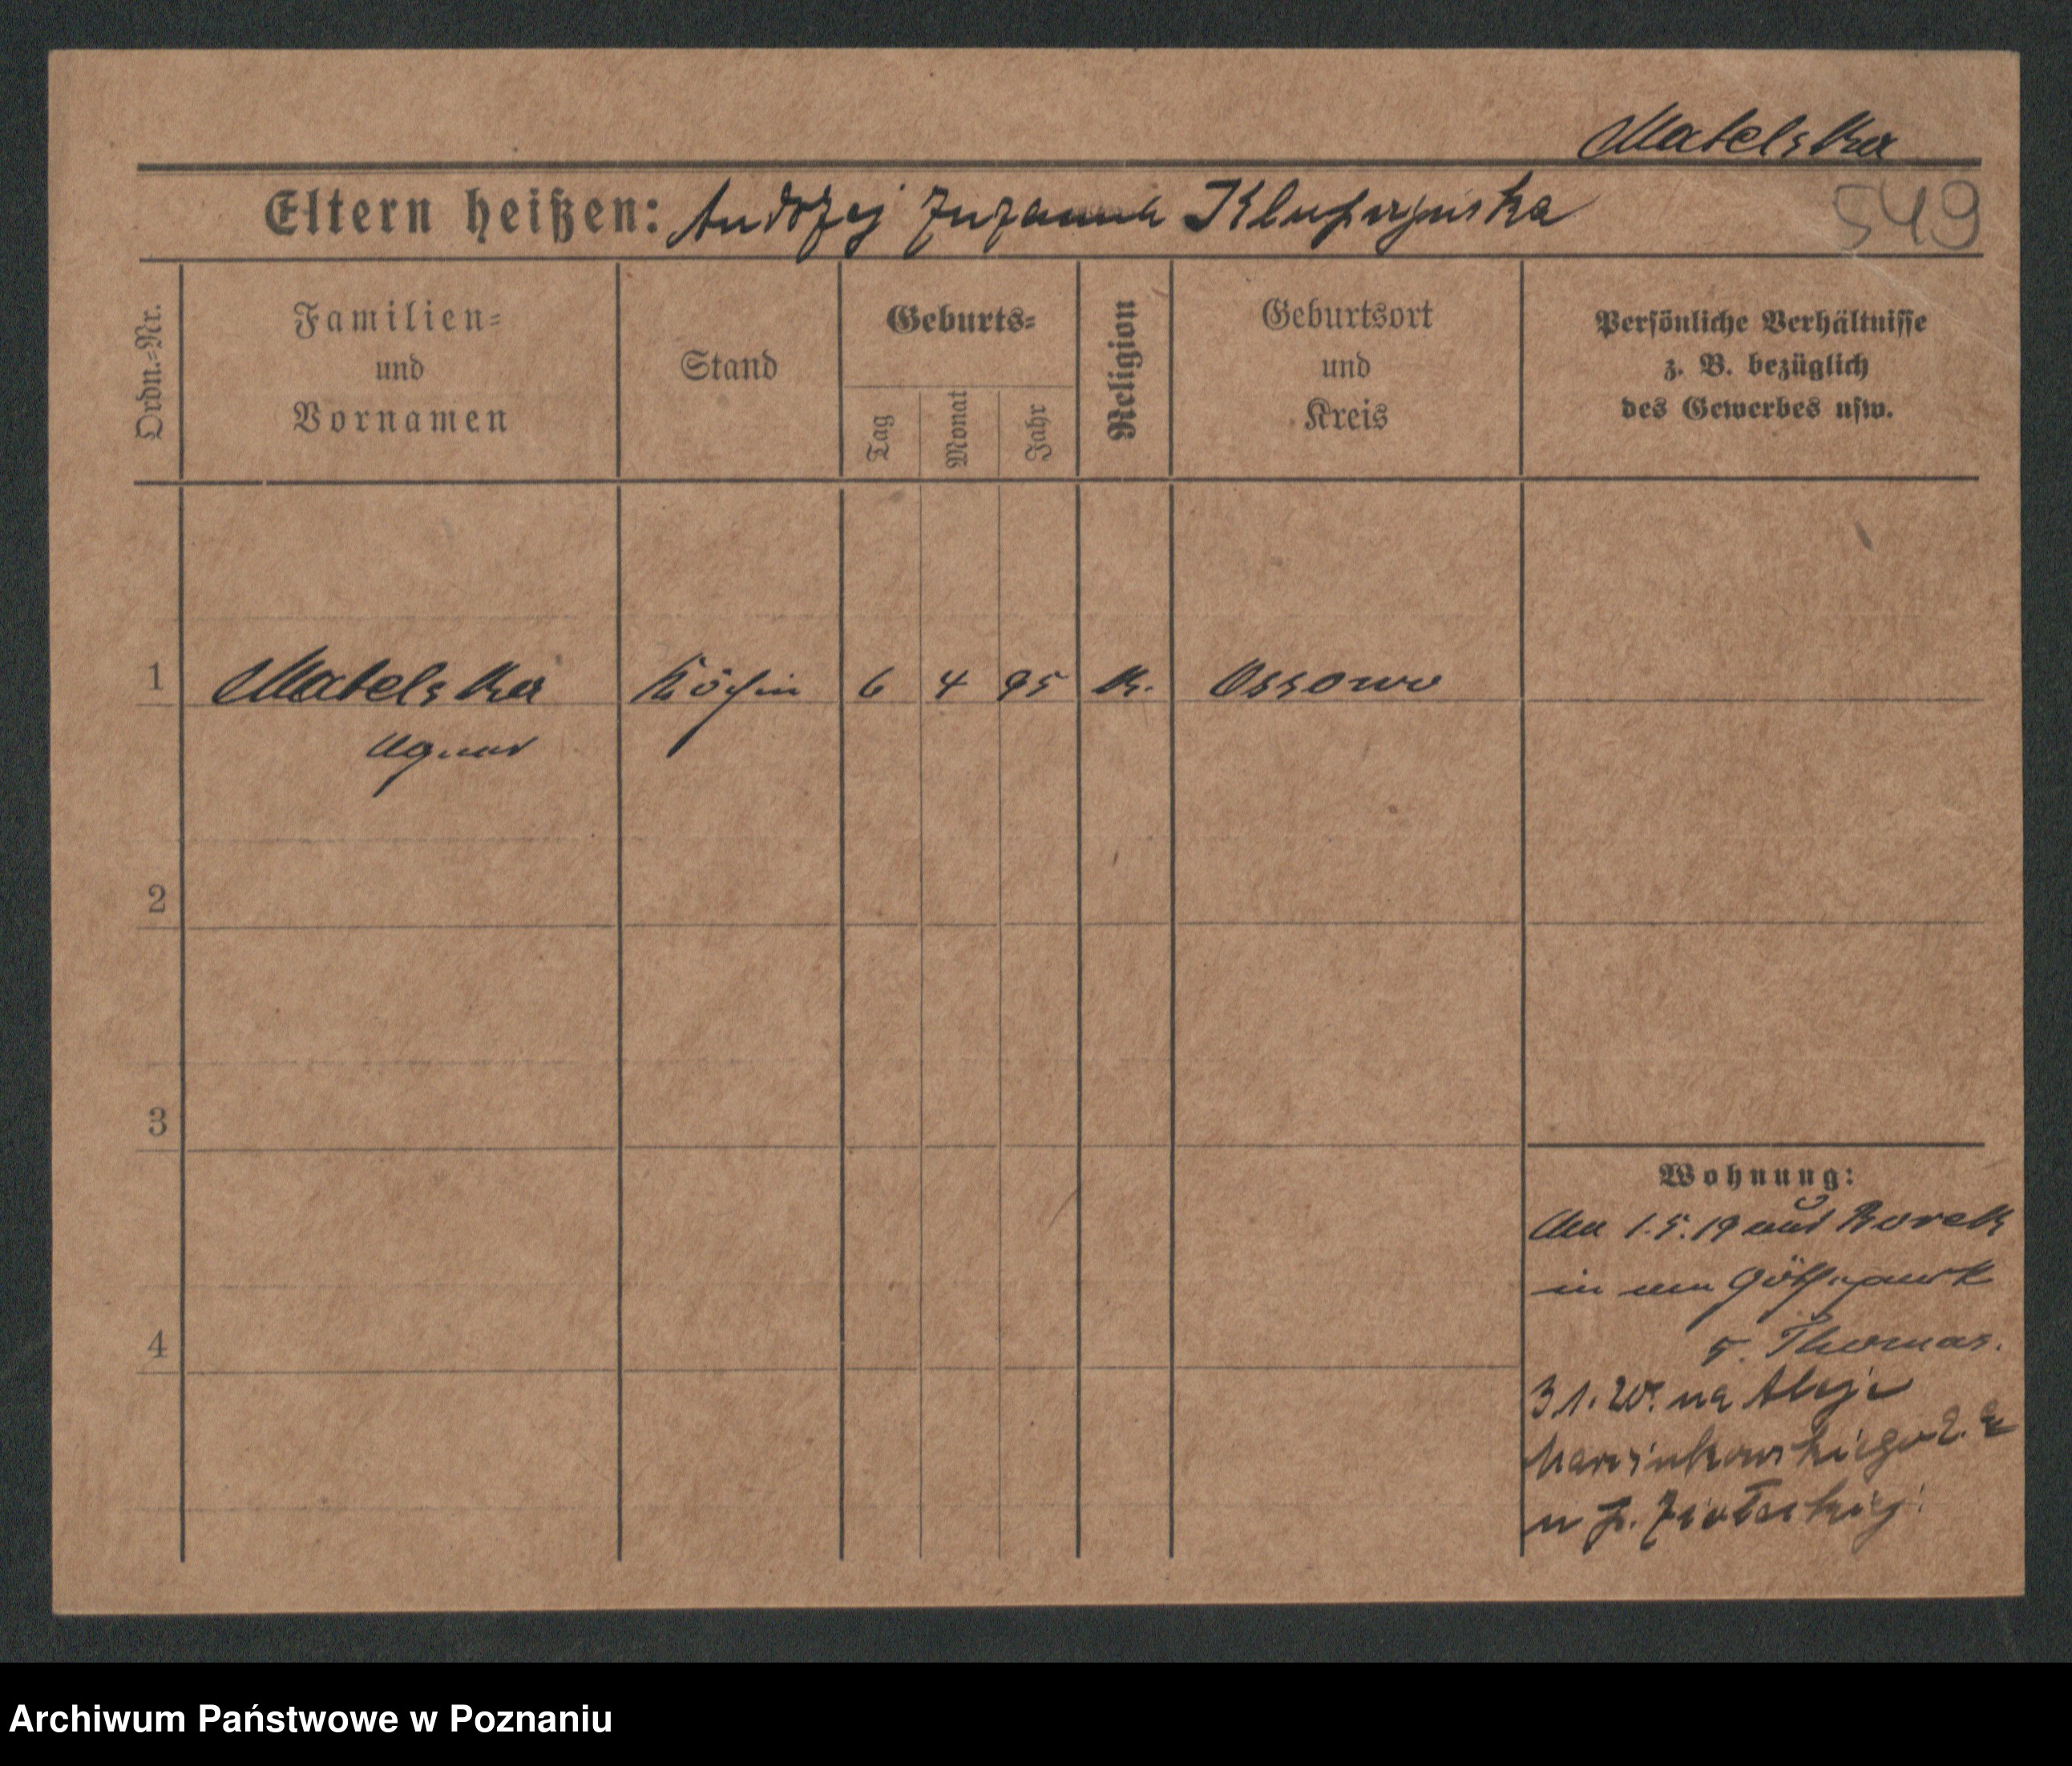 Matelska
Eltern heißen: Andrzej Zuzanna
549
Ordn.=Nr.
Familien=
und
Vornamen
Stand
Geburts=
Tag
Monat
Jahr
Religion
Geburtsort
und
Kreis
Persönliche Verhältnisse
z. B. bezüglich
des Gewerbes usw.
1 Matelska Köchin 6 4 95 k. Ossowo
Agnes
2
3
4
Wohnung:
1.5.19 aus Borek
in
v. Thomas.
31. na Aleje
Marcinkowskiego
Archiwum Państwowe w Poznaniu